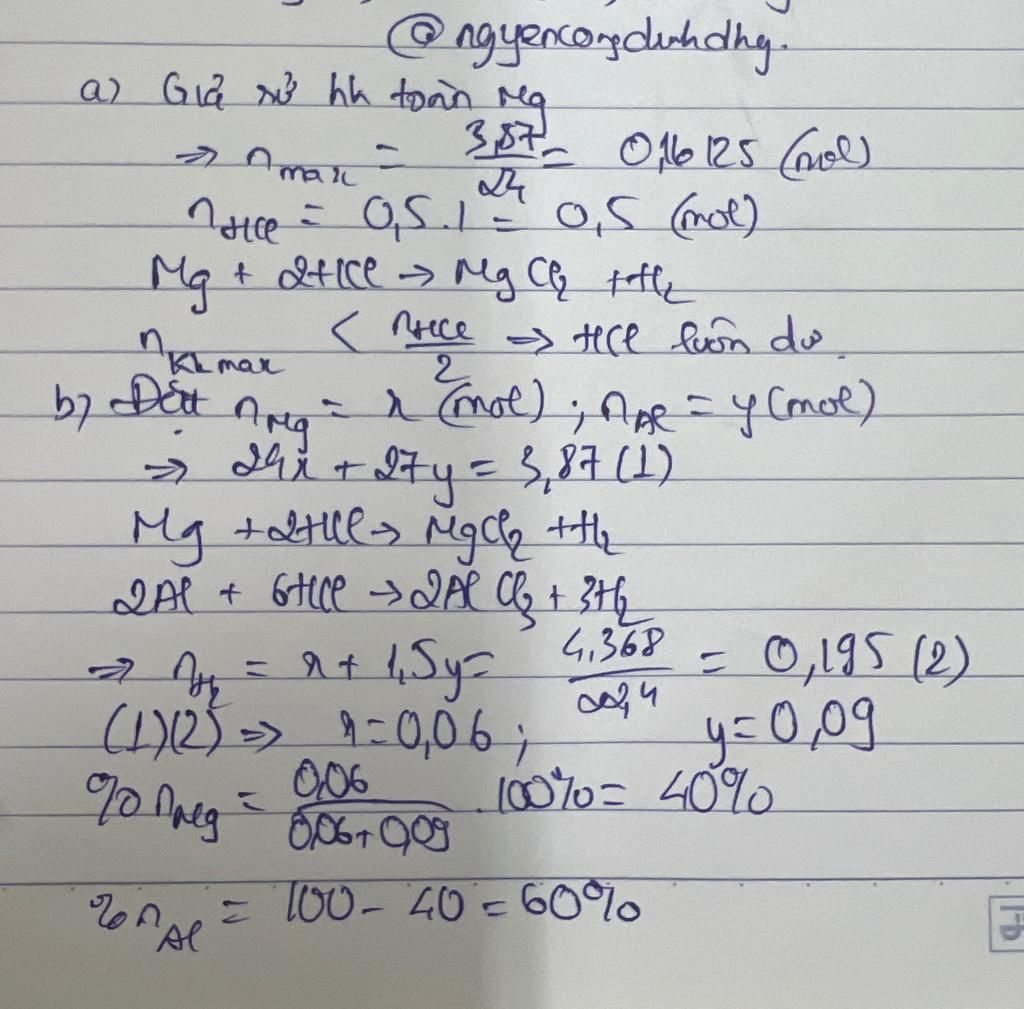 @ngyencongdinhdhg.
a) Giả sử hh toàn Mg
⇒ n max = 3,87/24 = 0,16125 (mol)
nHCl = 0,5.1 = 0,5 (mol)
Mg + 2HCl → MgCl2 + H2
n KL max < nHCl/2 ⇒ HCl luôn dư.
b) Đặt nMg = x (mol) ; nAl = y (mol)
⇒ 24x + 27y = 3,87 (1)
Mg + 2HCl → MgCl2 + H2
2Al + 6HCl → 2AlCl3 + 3H2
⇒ nH2 = x + 1,5y = 4,368/22,4 = 0,195 (2)
(1)(2) ⇒ x = 0,06 ; y = 0,09
%nMg = 0,06/0,06+0,09 . 100% = 40%
%nAl = 100 - 40 = 60%